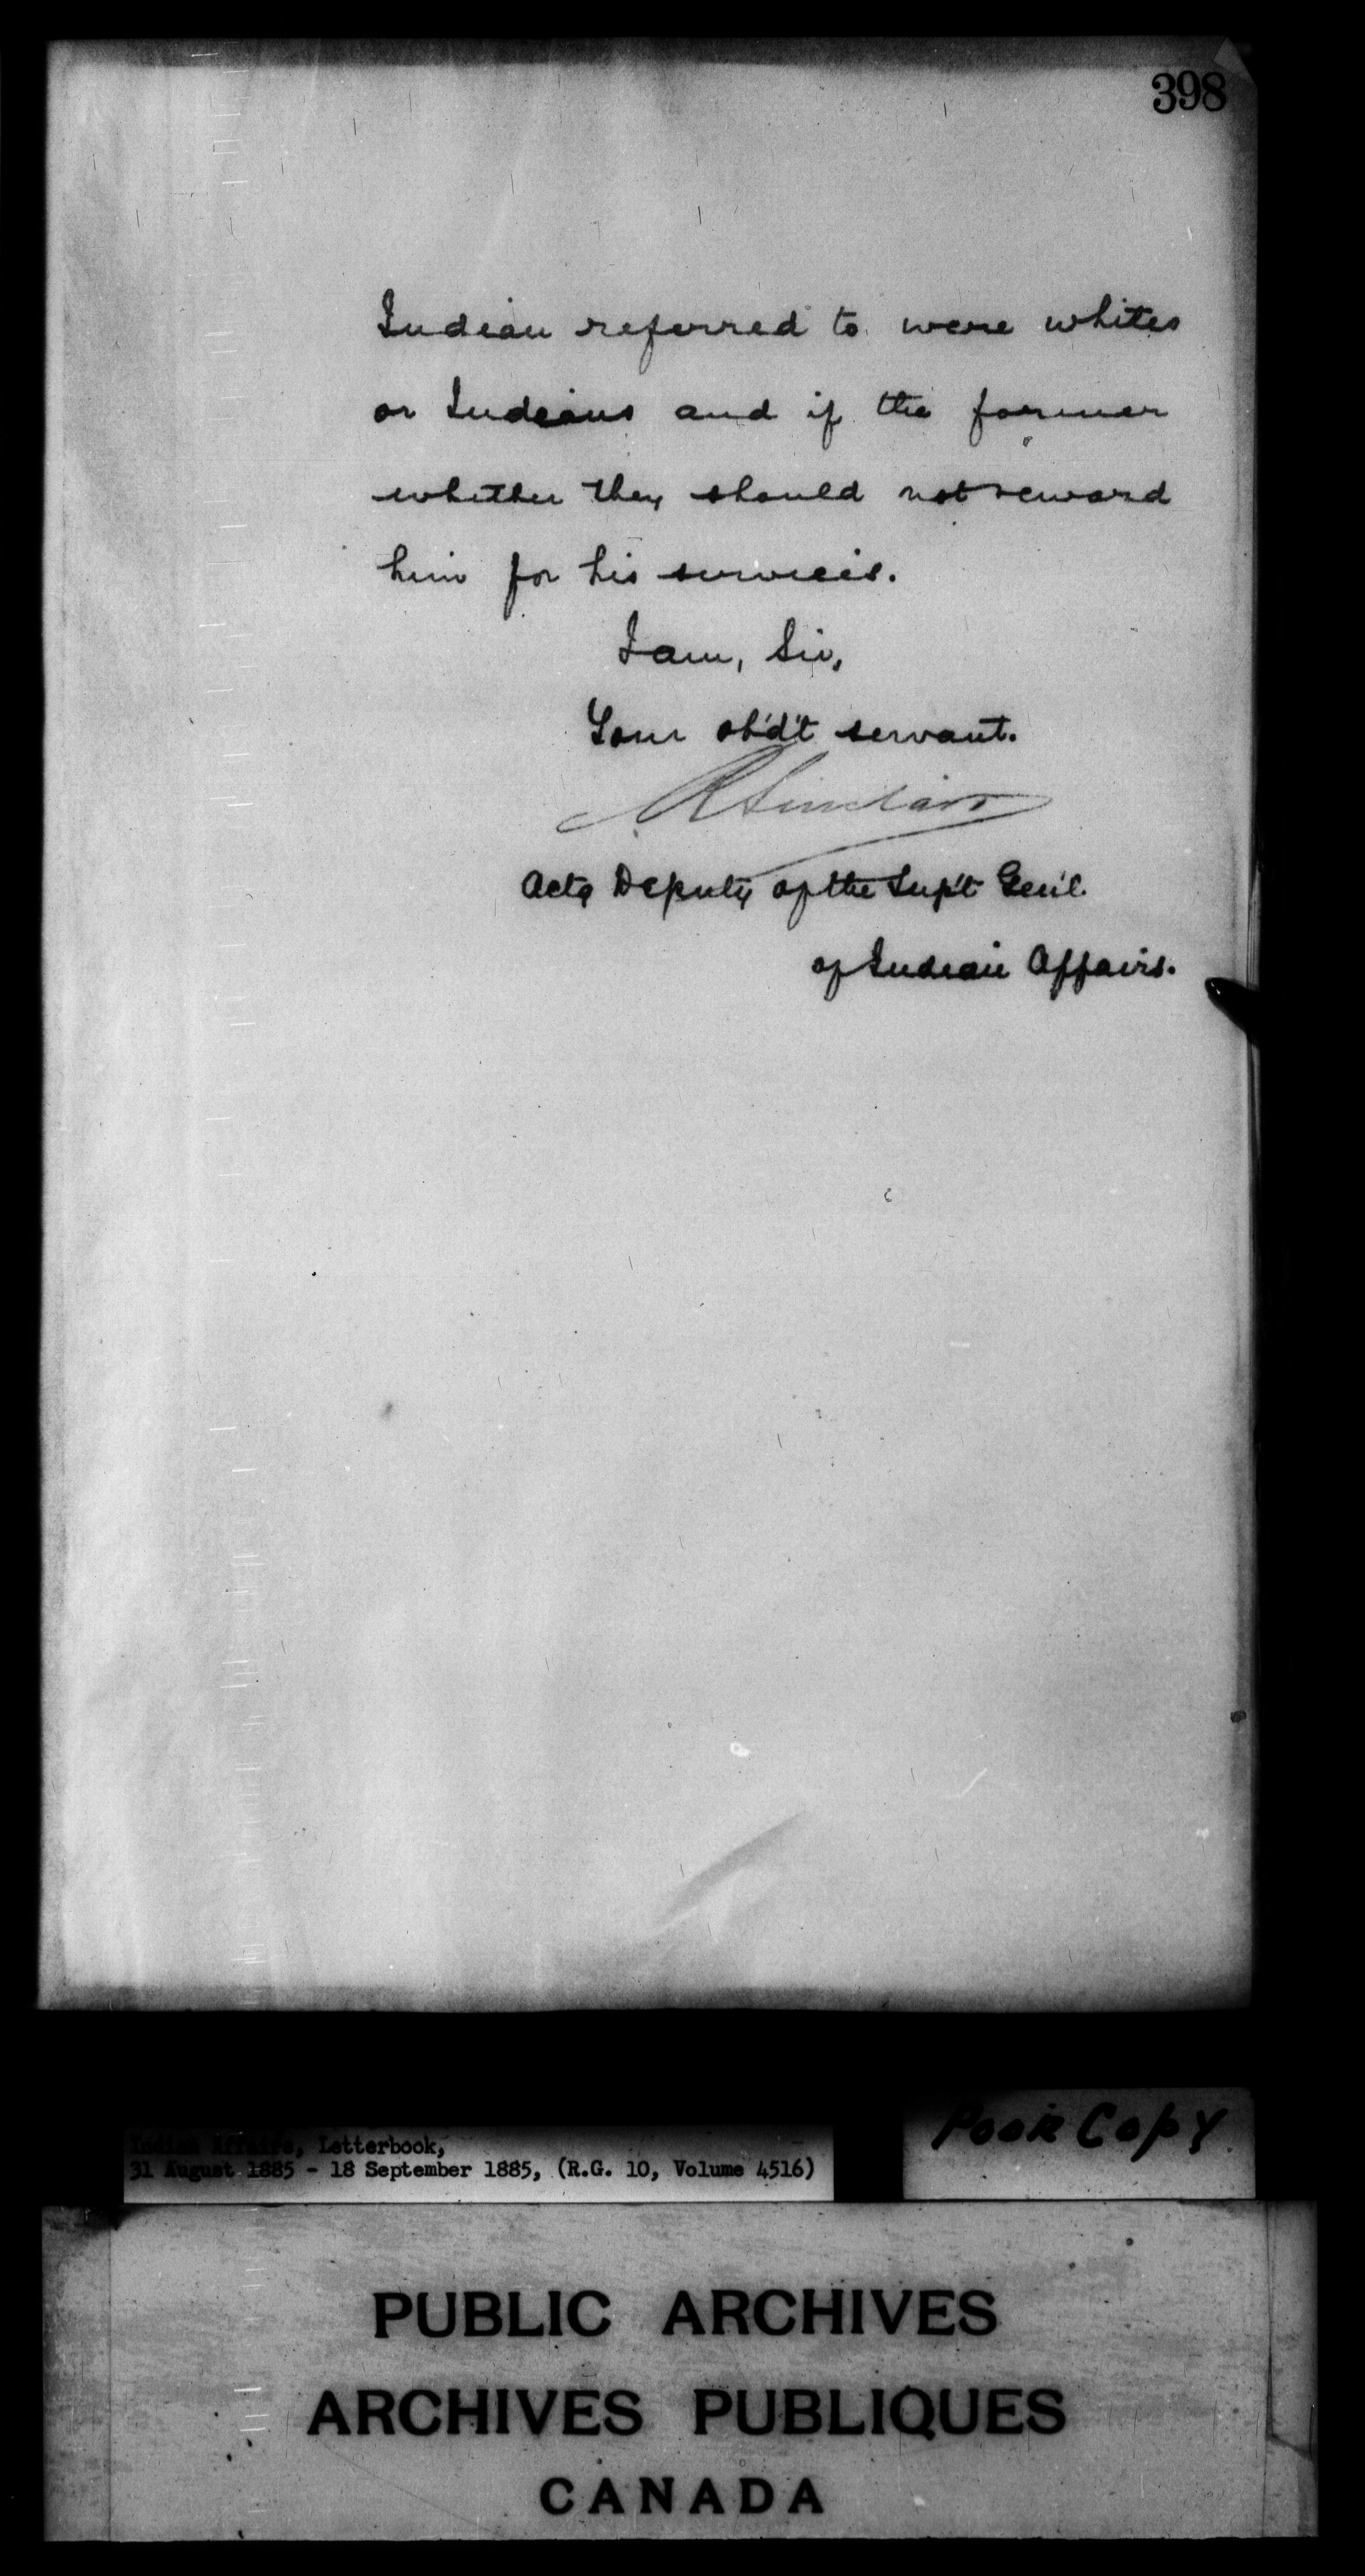 398
Indian referred to were whites
or Indians and if the former
whether they should not reward
him for his services.
I am, Sir,
Your ob'd't servant.
R Sinclair
Actg Deputy of the Sup't Gen'l.
of Indian Affairs.
Poor Copy
Indian Affairs, Letterbook,
31 August 1885 - 18 September 1885, (R.G. 10, Volume 4516)
PUBLIC ARCHIVES
ARCHIVES PUBLIQUES
CANADA